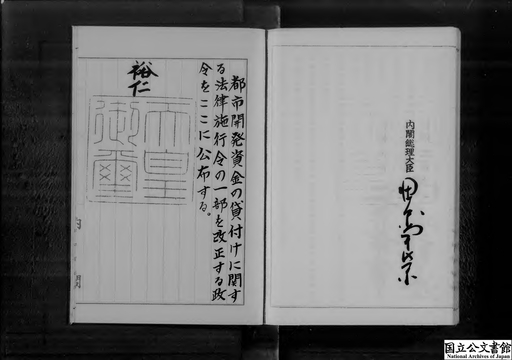 内閣総理大臣
田中角榮
都市開発資金の貸付けに関す
る法律施行令の一部を改正する政
令をここに公布する。
裕仁
天皇
御璽
内閣
国立公文書館
National Archives of Japan